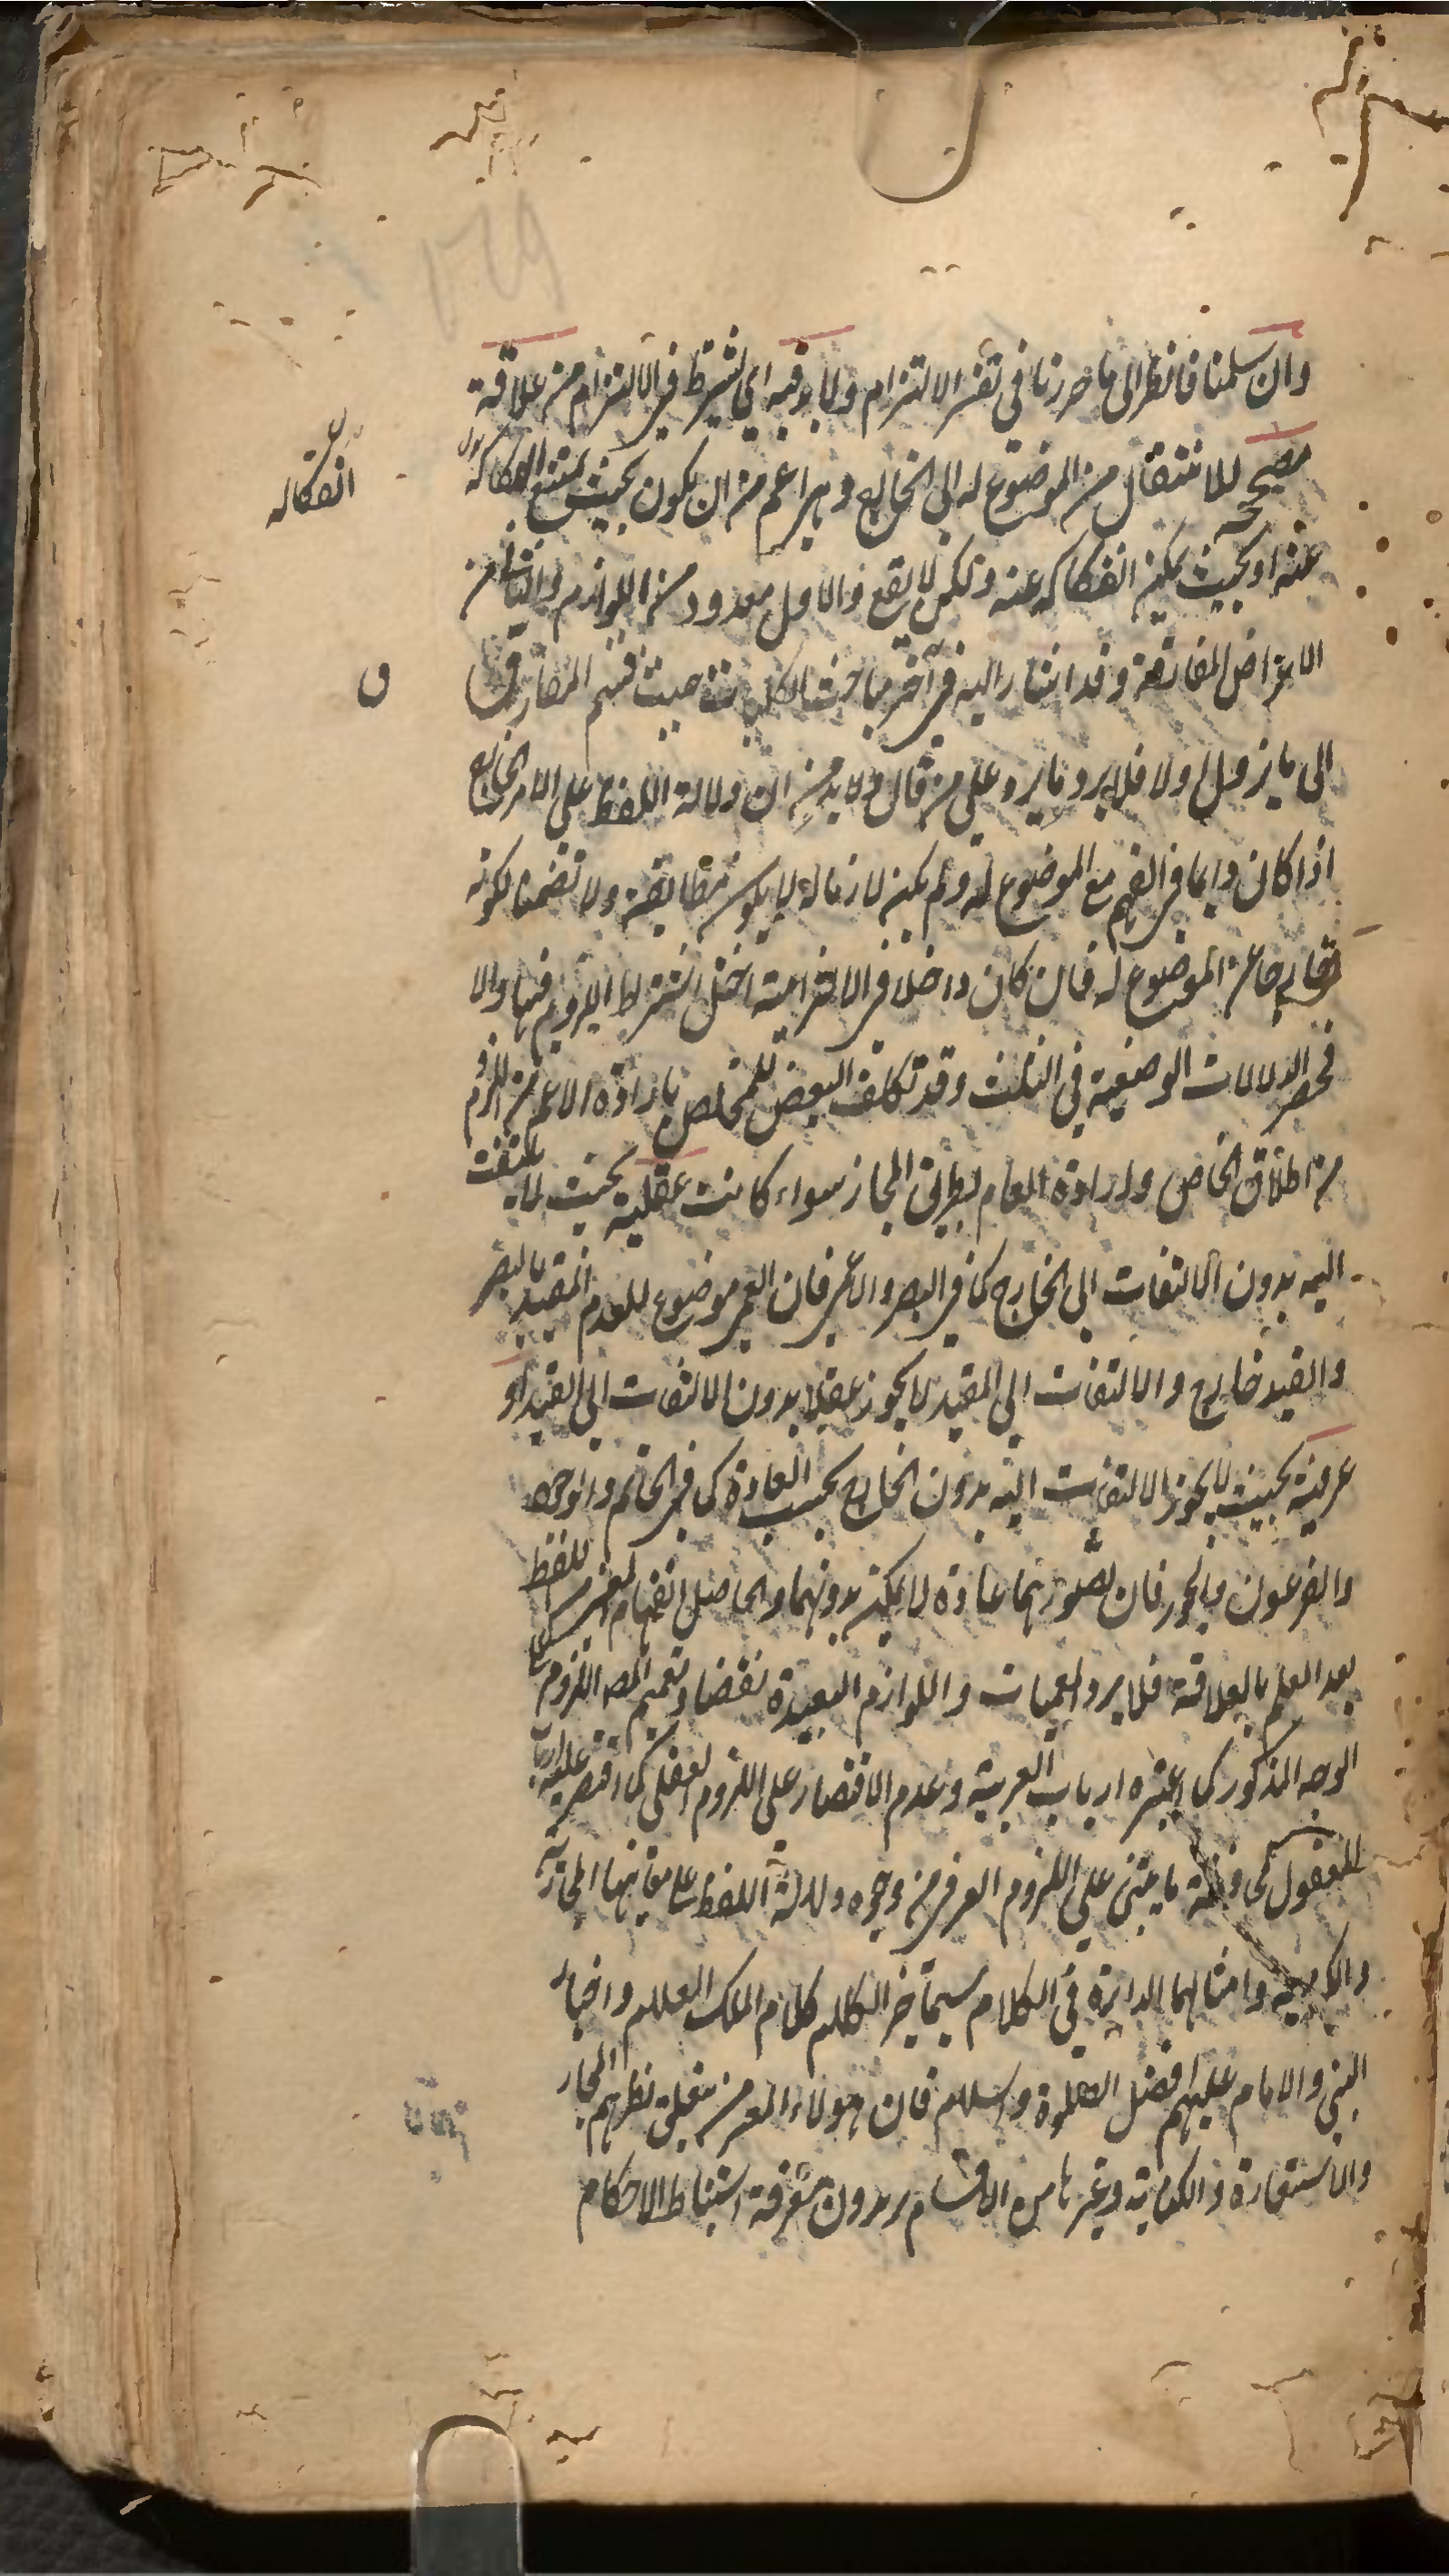 وان سلمنا فانظر الى ما حررنا في تفسير الالتزام ولا بد فيه اي يشترط في الالتزام من علاقة
مصححة للانتقال من الموضوع له الى الخارج وهي اعم من ان يكون بحيث يمتنع انفكاكه
انفكاكه
عنه او بحيث يمكن انفكاكه عنه ولكن لا يقع والاول معدود من اللوازم والثاني من
الاعراض المفارقة وقد اشار اليه في آخر مباحث الكليات حيث قسم المفارق
الى ما يزول اولا فلا يرد ما يرد على من قال ولا بد من ان دلالة اللفظ على الامر الخارج
اذا كان دايما في الفهم مع الموضوع له ولم يكن لازما له لا يكون مطابقة ولا تضمنا لكونه
خارجا عن الموضوع له فان كان داخلا في الالتزامية اختل اشتراط اللزوم فيها والا
فحصر الدلالات الوضعية في الثلث وقد تكلف البعض للتخلص بارادة الاعم من اللزوم
من اطلاق الخاص وارادة العام بطريق المجاز سواء كانت عقلية بحيث لا يلتفت
اليه بدون الالتفات الى الخارج كما في البصر والاعمى فان العمى موضوع للعدم المقيد بالبصر
والقيد خارج والالتفات الى المقيد لا يجوز عقلا بدون الالتفات الى القيد او
عرفية بحيث لا يجوز الالتفات اليه بدون الخارج بحسب العادة كما في الحاتم والجود
والفرعون والجور فان تصورهما عادة لا يمكن بدونهما والحاصل انفهام المعنى من اللفظ
بعد العلم بالعلاقة فلا يرد المعميات واللوازم البعيدة نقضا وتعميم المص اللزوم على
الوجه المذكور كما اعتبره ارباب العربية وعدم الاقتصار على اللزوم العقلي كما اقتصر عليه ارباب
المعقول ما يبتنى على اللزوم العرفي من وجوه دلالة اللفظ على معانيها المجازية
وامثالهما الدايرة في الكلام سيما خير الكلام كلام الملك العلام واخبار
النبي والامام عليهم افضل الصلوة والسلام فان هولاء المعرضين نظرهم المجاز
والاستعارة والكناية وغيرها من الاقسام يريدون معرفة استنباط الاحكام